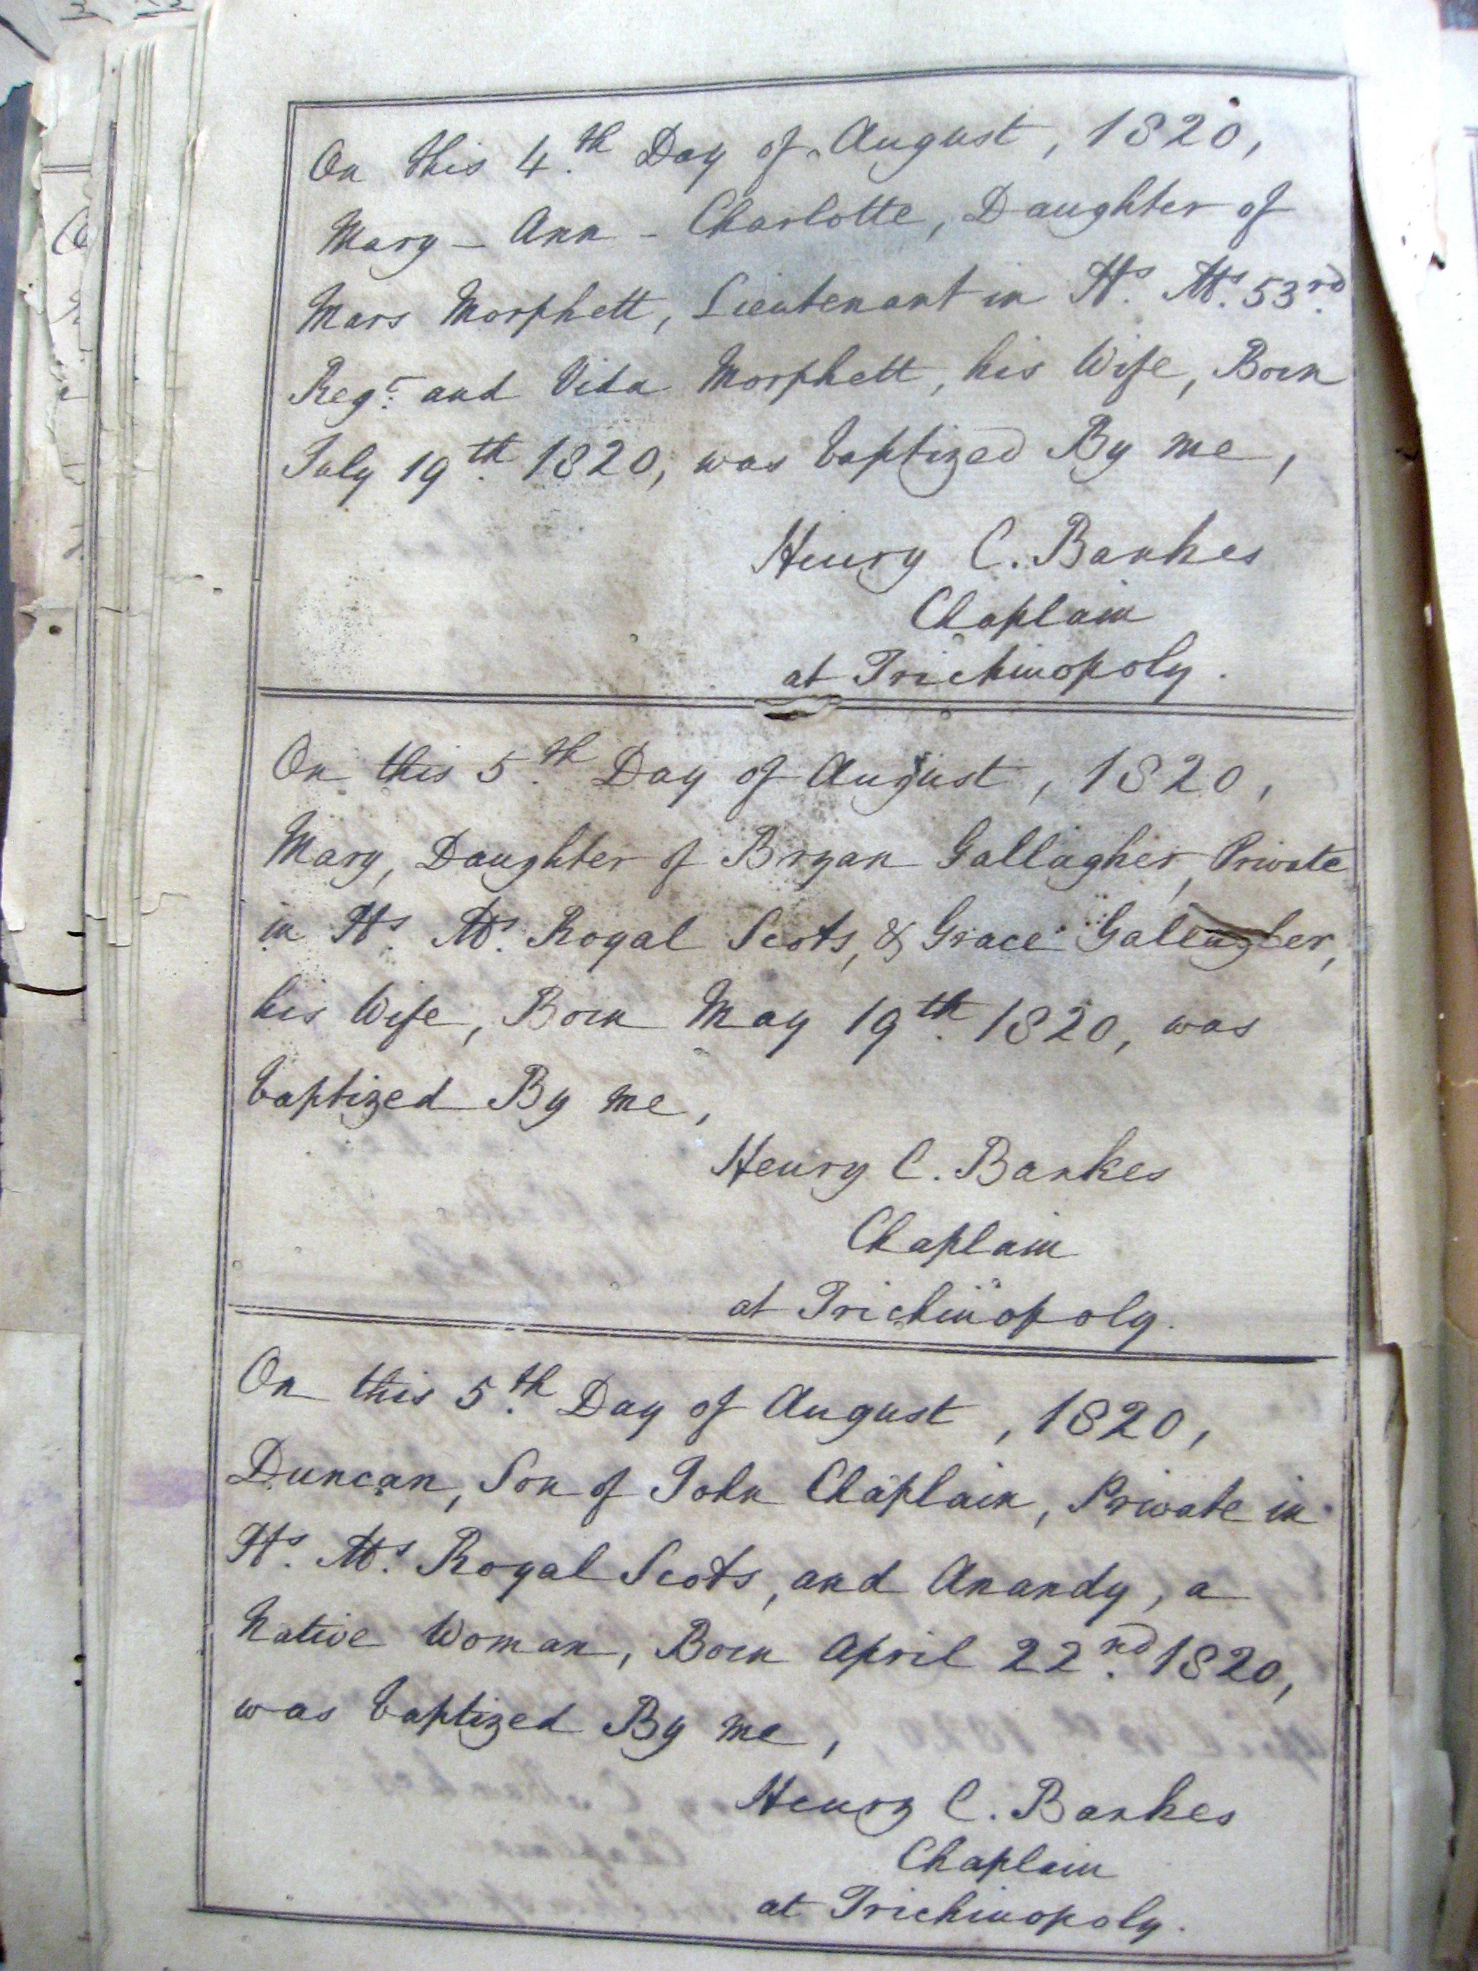 On this 4.th Day of August, 1820,
Mary - Ann - Charlotte, Daughter of
Mars Morphett, Lieutenant in Hs. Ms. 53rd.
Regt. and Vida Morphett, his Wife, Born
July 19th. 1820, was baptized By me,
Henry C. Bankes
Chaplain
at Trichinopoly.
On this 5.th Day of August, 1820,
Mary, Daughter of Bryan Gallagher, Private
in Hs. Ms. Royal Scots, & Grace Gallagher,
his Wife, Born May 19th. 1820, was
baptized By me,
Henry C. Bankes
Chaplain
at Trichinopoly.
On this 5.th Day of August, 1820,
Duncan, Son of John Chaplain, Private in
Hs. Ms. Royal Scots, and Anandy, a
Native Woman, Born April 22nd. 1820,
was baptized By me,
Henry C. Bankes
Chaplain
at Trichinopoly.